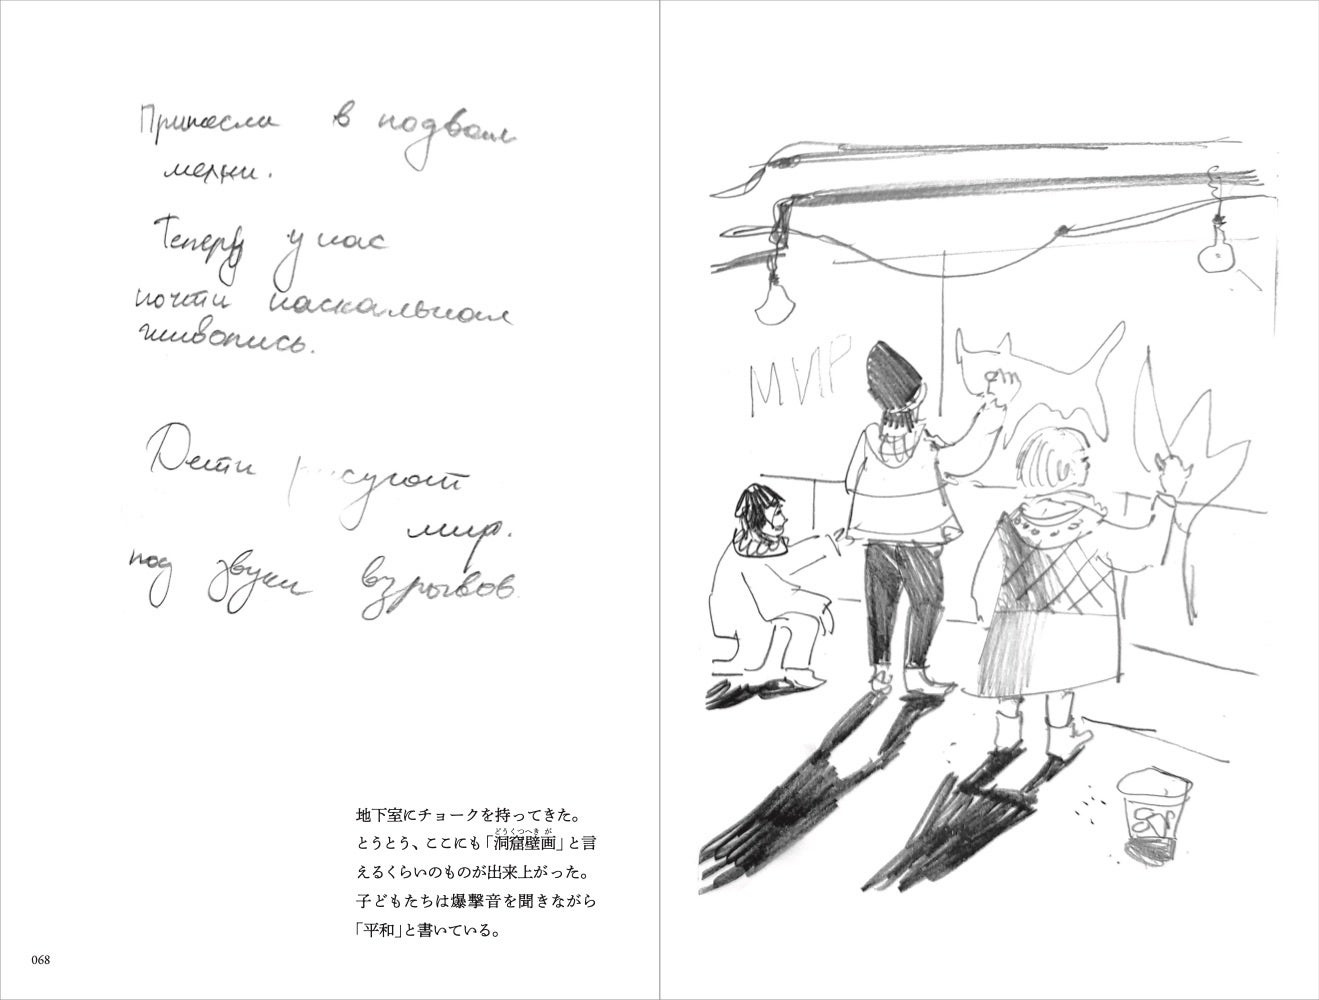 Принесли в подвал
мелки.
Теперь у нас
почти наскальная
живопись.
Дети рисуют
мир.
под звуки взрывов
地下室にチョークを持ってきた。
どうくつへきが
とうとう、ここにも「洞窟壁画」と言
えるくらいのものが出来上がった。
子どもたちは爆撃音を聞きながら
「平和」と書いている。
068
МИР